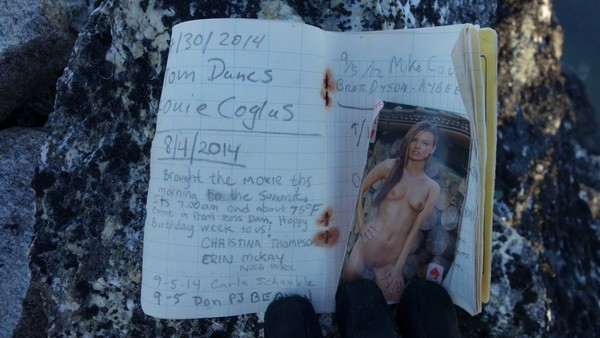 /30/2014
Tom Dancs
Louie Coglas
8/4/2014
Brought the MOXIE this
morning to the Summit.
Its 7:00am and about 75°F
Dam. Happy
Birthday week to us!
CHRISTINA THOMPSO
ERIN McKAY
9-5-14 Carla Schauble
9-5 Don PJ
9/5/12 Mike Co
DYSON - 
9/1